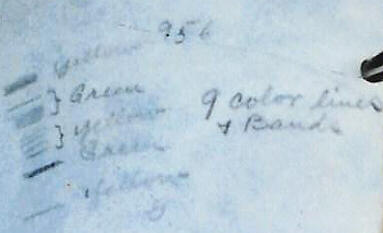 956
Yellow
} Green
} Yellow
Green
Yellow
9 color lines
& Bands